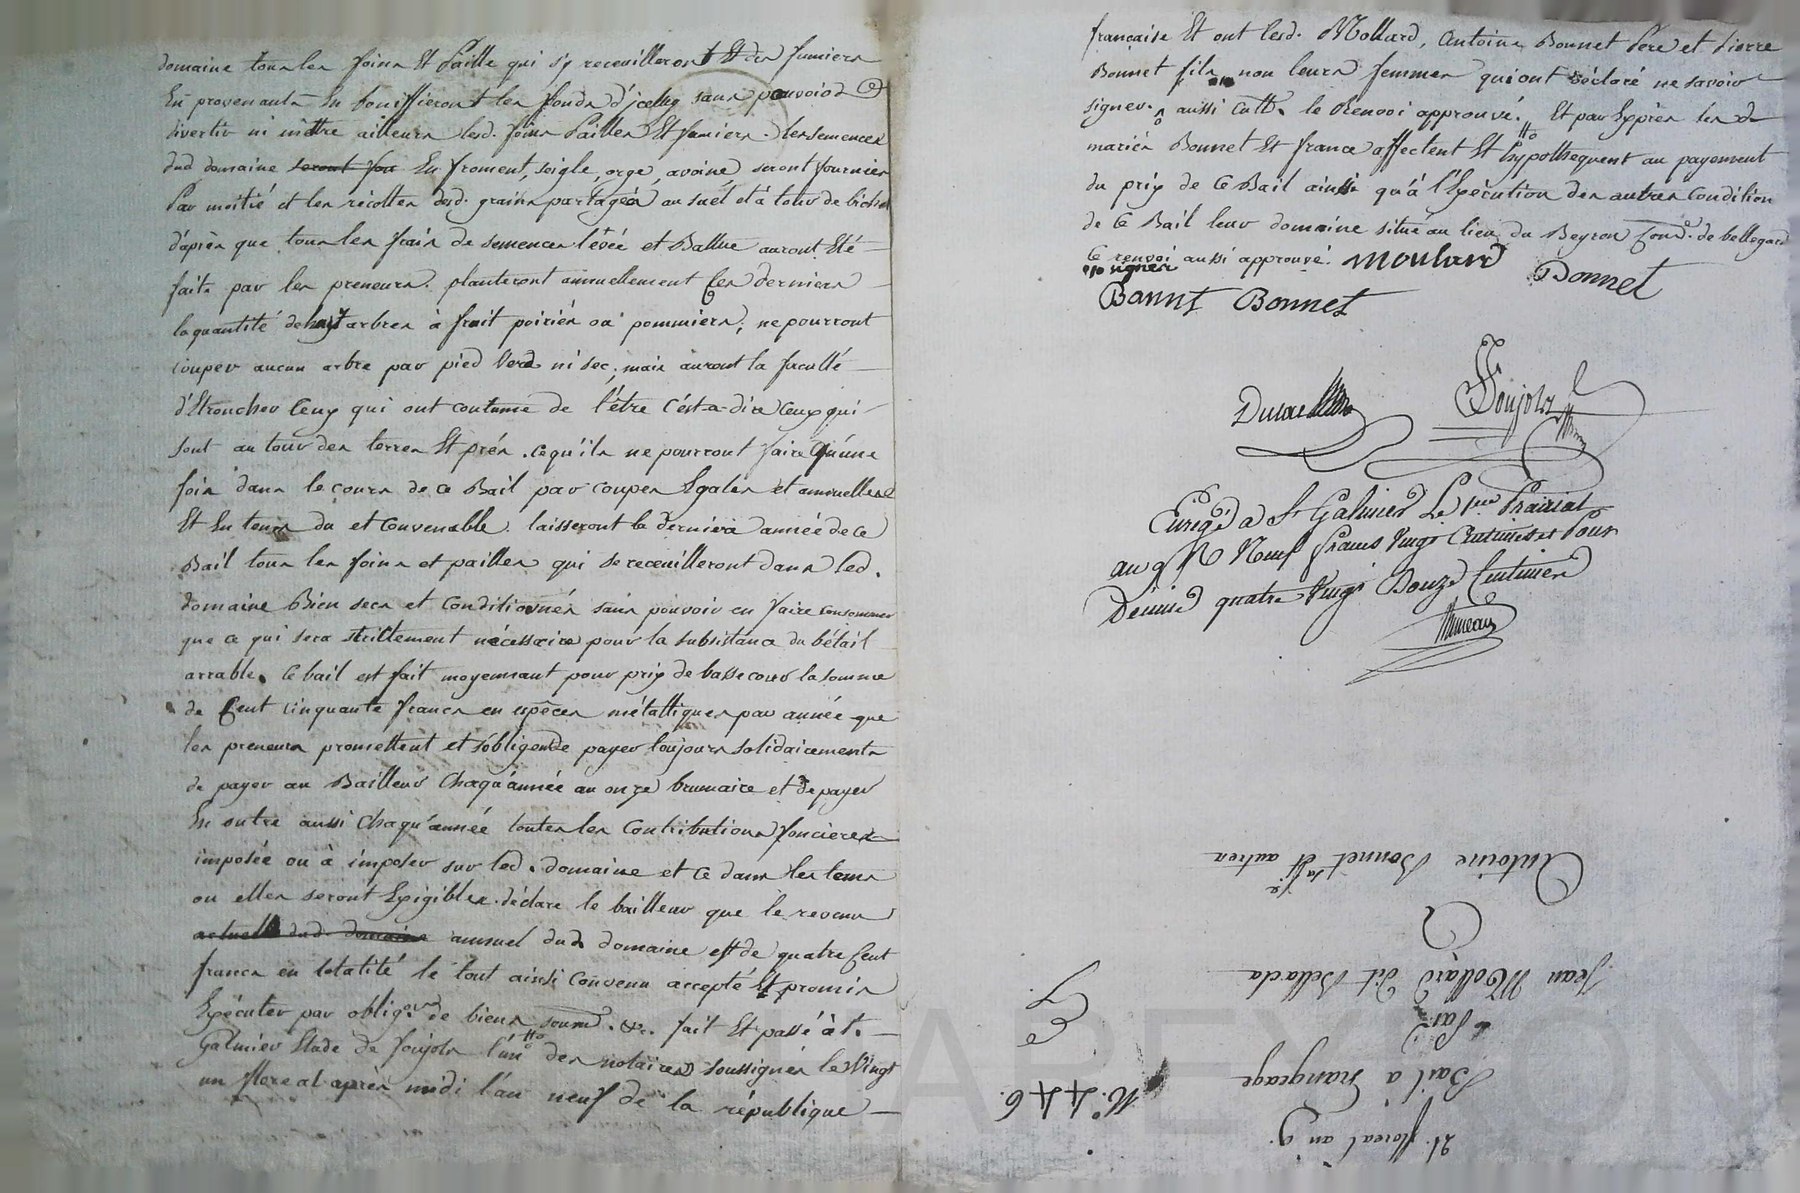 domaine tous les foins Et Paille qui s'y receuilleront Et des fumiers
En provenants En boniffieront les fonds d'jceluy sans pouvoir
divertir ni mettre ailleurs lesd. foins Pailles Et fumiers. les semences
dud domaine seront En froment, seigle, orge, avoine, seront fournies
Par moitié et les récoltes desd. grains partagés au suël et à tour de bichet
d'après que tous les frais de semences levée et Battue auront Eté
faits par les preneurs. planteront annuellement Ces derniers
la quantité de huit arbres à fruit poiriés ou pommiers; ne pourront
couper aucun arbre par pied Verd ni sec; mais auront la faculté
d'Etroncher Ceux qui ont coutume de l'être C'est-a-dire Ceux qui
sont autour des terres Et prés. ce qu'ils ne pourront faire qu'une
fois dans le cours de ce Bail par coupes Egales et annuelles
Et En tems du et convenable. laisseront la derniere année de ce
Bail tous les foins et pailles qui se receuilleront dans led.
domaine Bien secs et conditionnés sans pouvoir en faire consommer
que ce qui sera strictement nécessaire pour la subsistance du bétail
arrable. Ce bail est fait moyennant pour prix de basse cour la somme
de Cent cinquante francs en espèces métalliques par année que
les preneurs promettent et s'obligent de payer toujours solidairement
de payer au Bailleur Chaqu'année au onze brumaire et de payer
En outre aussi Chaqu'année toutes les Contributions foncieres
imposée ou à imposer sur led. domaine et ce dans les tems
ou elles seront Exigibles. déclare le bailleur que le revenu
actuel dud. domaine annuel dud domaine est de quatre Cent
francs en totalité le tout ainsi convenu accepté Et promis
Exécuter par oblig.on de biens soum. &c. fait Et passé à St.
Galmier Etude de Poujols l'un des notaires soussignés le Vingt
un floreal après midi l'an neuf de la république
française Et ont lesd. Mollard, Antoine Bonnet Père et Pierre
Bonnet fils non leurs femmes qui ont déclaré ne savoir
signer. aussi Cult. le Renvoi approuvé. Et par Exprès les d
mariés Bonnet Et france affectent Et hypothequent au payement
du prix de Ce Bail ainsi qu'à l'Exécution des autres condition
de Ce Bail leur domaine situé au lieu du Beyron Comne. de bellegarde
Ce renvoi aussi approuvé. Moulard Bonnet
signer
Bonnt Bonnet
Poujols
Enrégé a St Galmier Le 1er Prairial
an 9 R Neuf francs Vingt Centimes et Pour
Decime quatre Vingt Douze Centimes
21. floreal an 9.
Bail à Grangeage
Par
Jean Mollard dit Bellacla
à
Antoine Bonnet sa ffe. et autres
N.° 446.
E